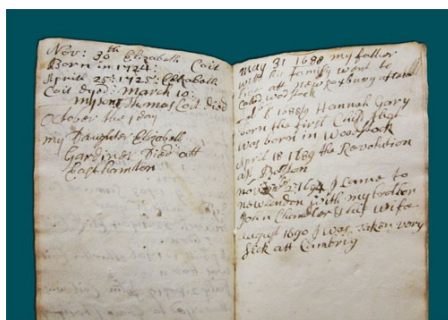 Nov: 30th Elizabeth Coit
Born in 1724:
April: 25: 1725: Elizabeth
Coit dyed: March 10:
my son Thomas Coit died
October the 1 day
my Daughter Elizabeth
Gardiner Died att
East hamton
may 31 1688 my father
with his family went to
live att new roxbury afterward
Called woodstock
1688/9 Hannah Gary
born the first Child that
was born in Woodstock
April 18 1689 the Revolution
att Boston
1694 I Came to
newlondon with my brother
John Chandlers wife
august 1690 I was taken very
Sick att Cambrig